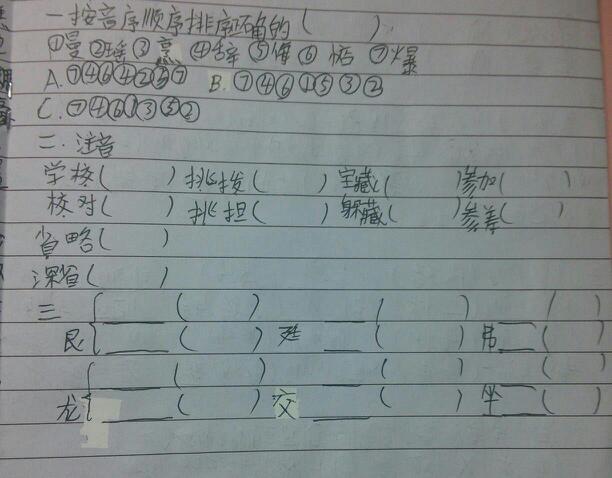 一.按音序顺序排序正确的( )
①曼 ②瑶 ③ ④辞 ⑤侮 ⑥惦 ⑦爆
A.⑦④⑥④②⑤⑦ B.⑦④⑥①⑤③②
C.⑦④⑥①③⑤②
二.注音
学校( ) 挑拨( ) 宝藏( ) 参加( )
校对( ) 挑担( ) 躲藏( ) 参差( )
省略( )
深省( )
三 ( ) ( ) ( )
艮 ( ) 廷 ( ) 弗 ( )
( ) ( ) ( )
龙 ( ) 交 ( ) 坐 ( )